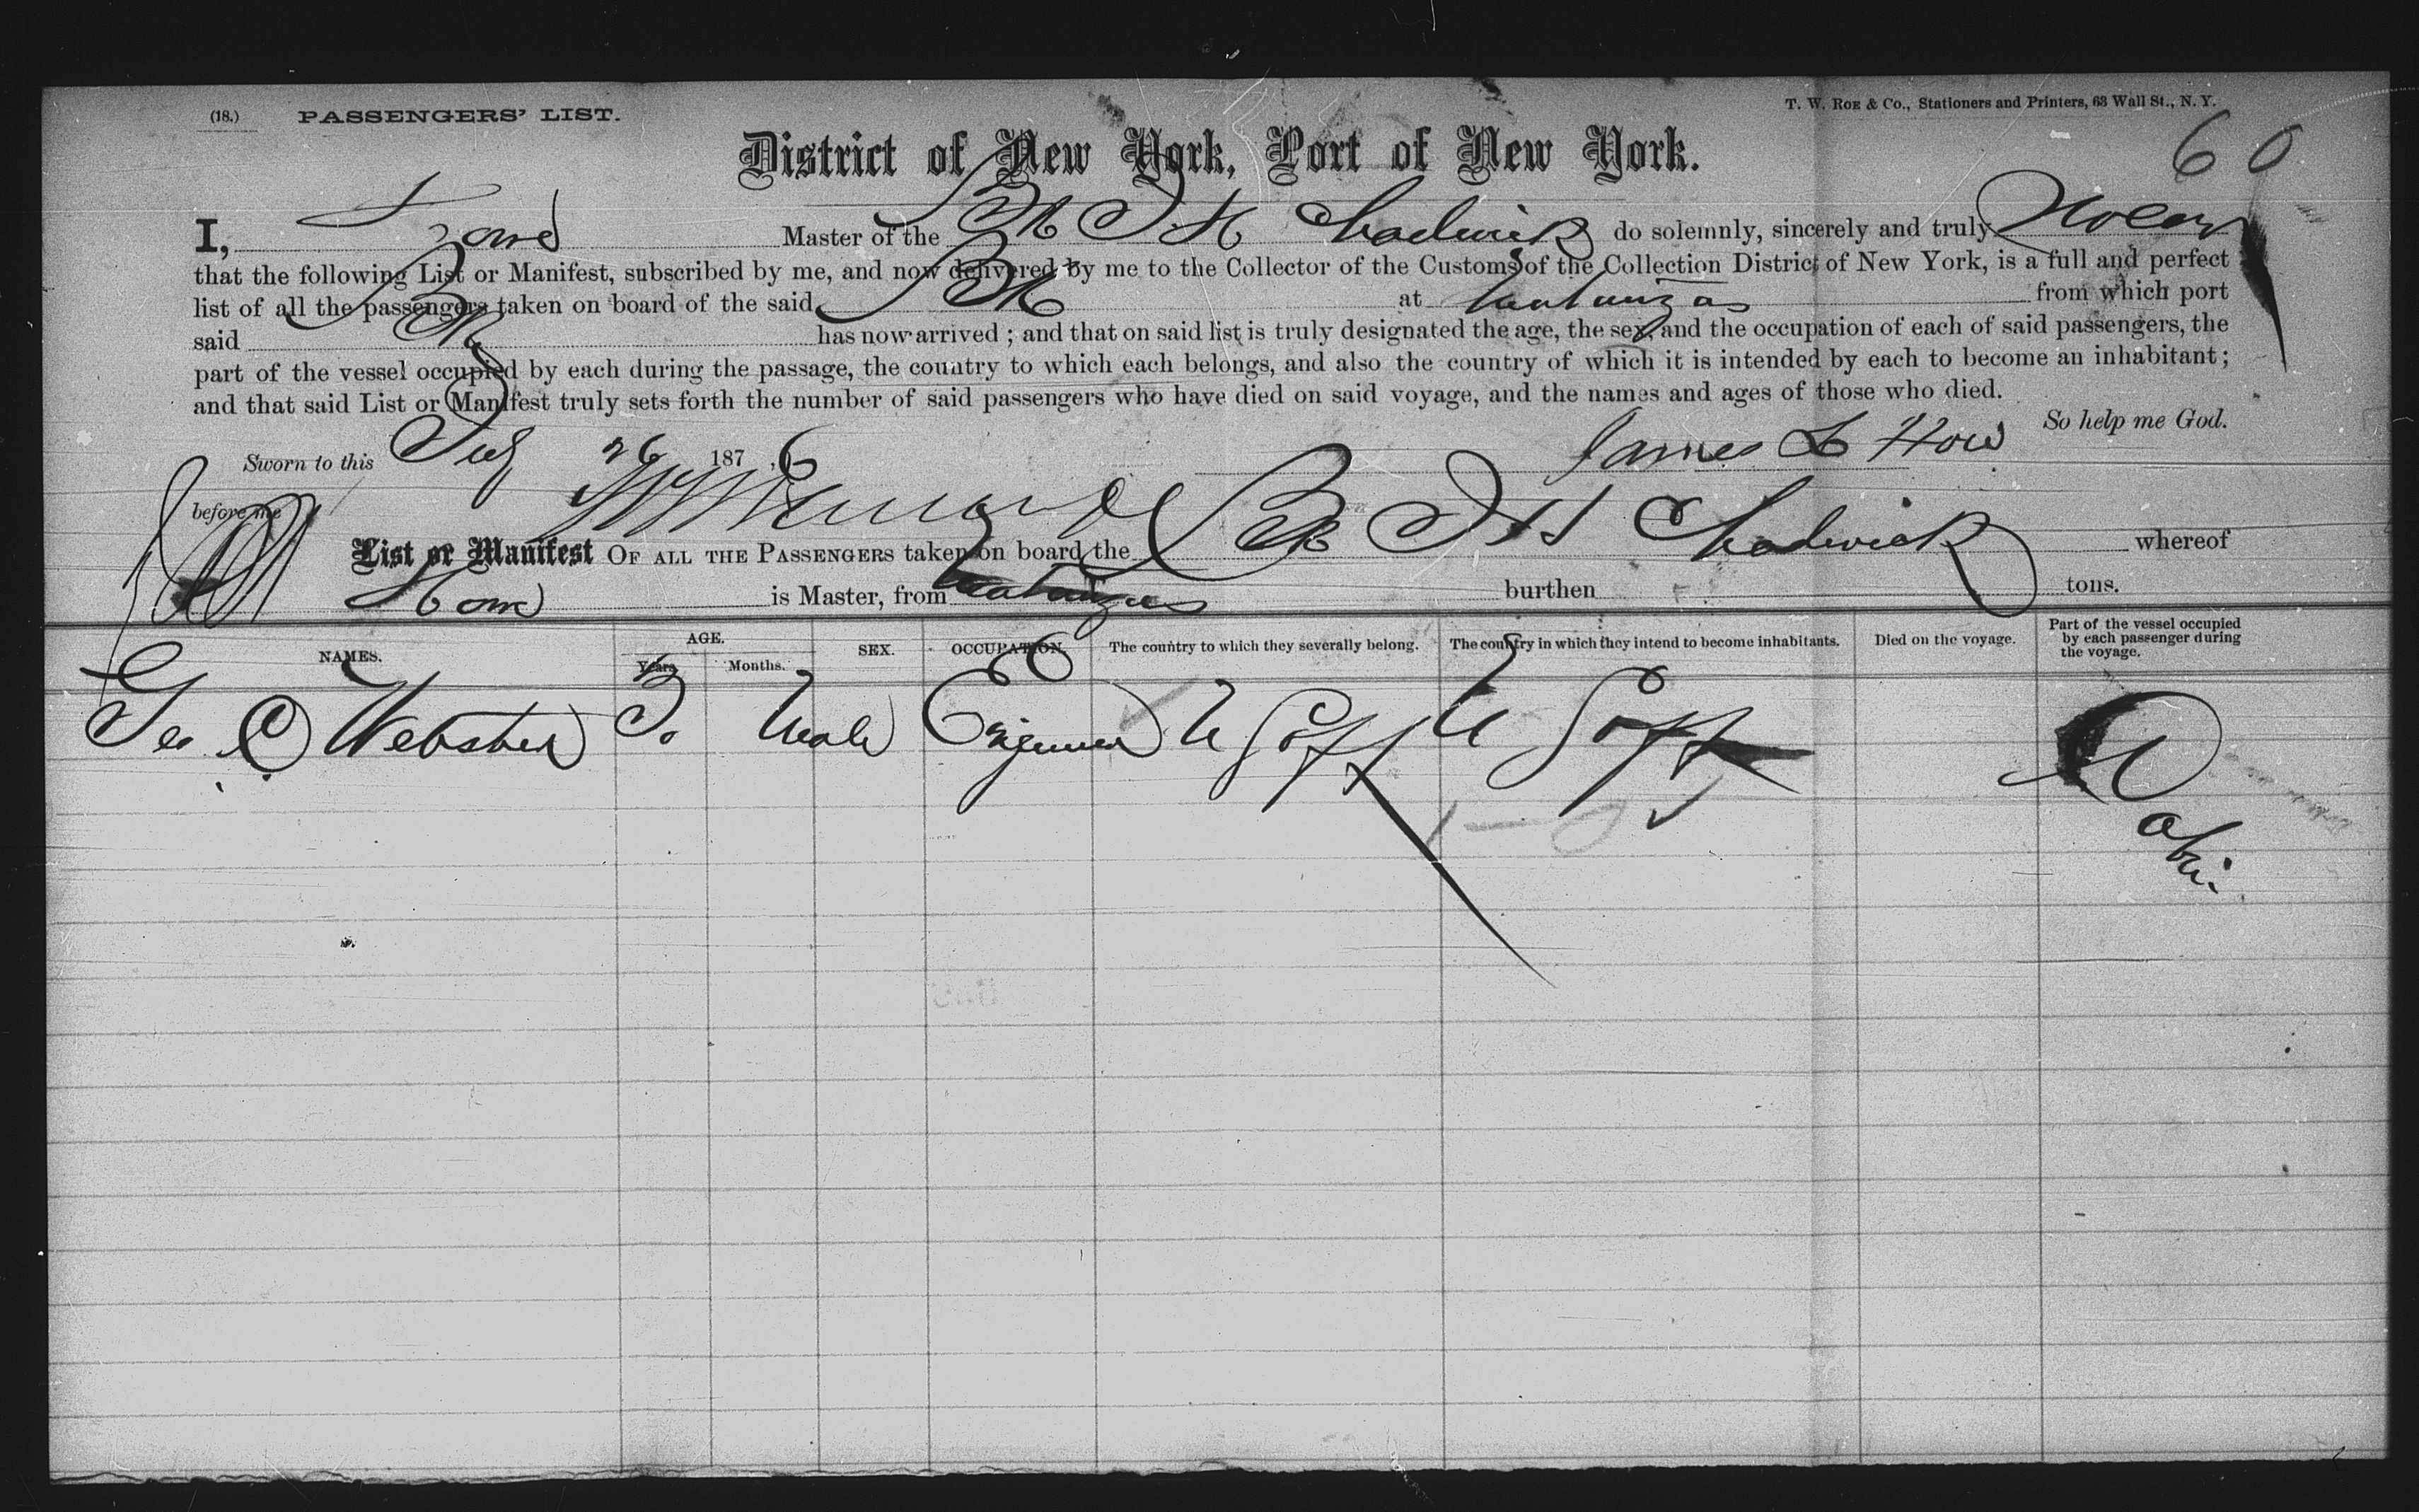 (18.) PASSENGERS' LIST. T. W. ROE & Co., Stationers and Printers, 63 Wall St., N. Y.
60
District of New York, Port of New York.
I, Howe Master of the Bk J H Chadwick do solemnly, sincerely and truly swear
that the following List or Manifest, subscribed by me, and now delivered by me to the Collector of the Customs of the Collection District of New York, is a full and perfect
list of all the passengers taken on board of the said Bk at Matanzas from which port
said Bk has now arrived ; and that on said list is truly designated the age, the sex, and the occupation of each of said passengers, the
part of the vessel occupied by each during the passage, the country to which each belongs, and also the country of which it is intended by each to become an inhabitant ;
and that said List or Manifest truly sets forth the number of said passengers who have died on said voyage, and the names and ages of those who died.
So help me God.
Sworn to this July 26 1876 James L How
before me
List or Manifest OF ALL THE PASSENGERS taken on board the Bk J H Chadwick whereof
Howe is Master, from Matanzas burthen tons.
NAMES. AGE. Years. Months. SEX. OCCUPATION. The country to which they severally belong. The country in which they intend to become inhabitants. Died on the voyage. Part of the vessel occupied by each passenger during the voyage.
Geo C Webster Male Engineer U S of A U S of A Cabin